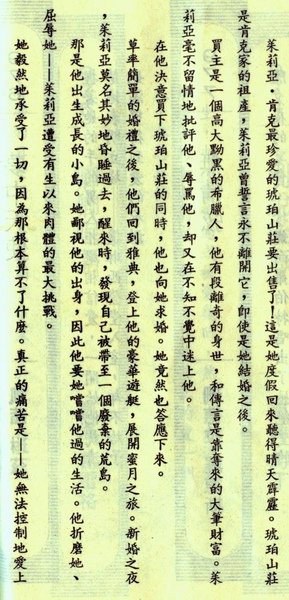 茱莉亞．肯克最珍愛的琥珀山莊要出售了！這是她度假回來聽得晴天霹靂。琥珀山莊
是肯克家的祖產，茱莉亞曾誓言永不離開它，即使是她結婚之後。
買主是一個高大黝黑的布臘人，他有段離奇的身世，和傳言是靠奪來的大筆財富。茱
莉亞毫不留情地批評他、辱罵他，却又在不知不覺中迷上他。
在他決意買下琥珀山莊的同時，他也向她求婚。她竟然也答應下來。
草率簡單的婚禮之後，他們回到雅典，登上他的豪華遊艇，展開蜜月之旅。新婚之夜
，茱莉亞莫名其妙地昏睡過去，醒來時，發現自己被帶至一個廢棄的荒島。
那是他出生成長的小島。她鄙視他的出身，因此他要她嚐嚐他過的生活。他折磨她、
屈辱她——茱莉亞遭受有生以來肉體的最大挑戰。
她毅然地承受了一切，因為那根本算不了什麼。真正的痛苦是——她無法控制地愛上